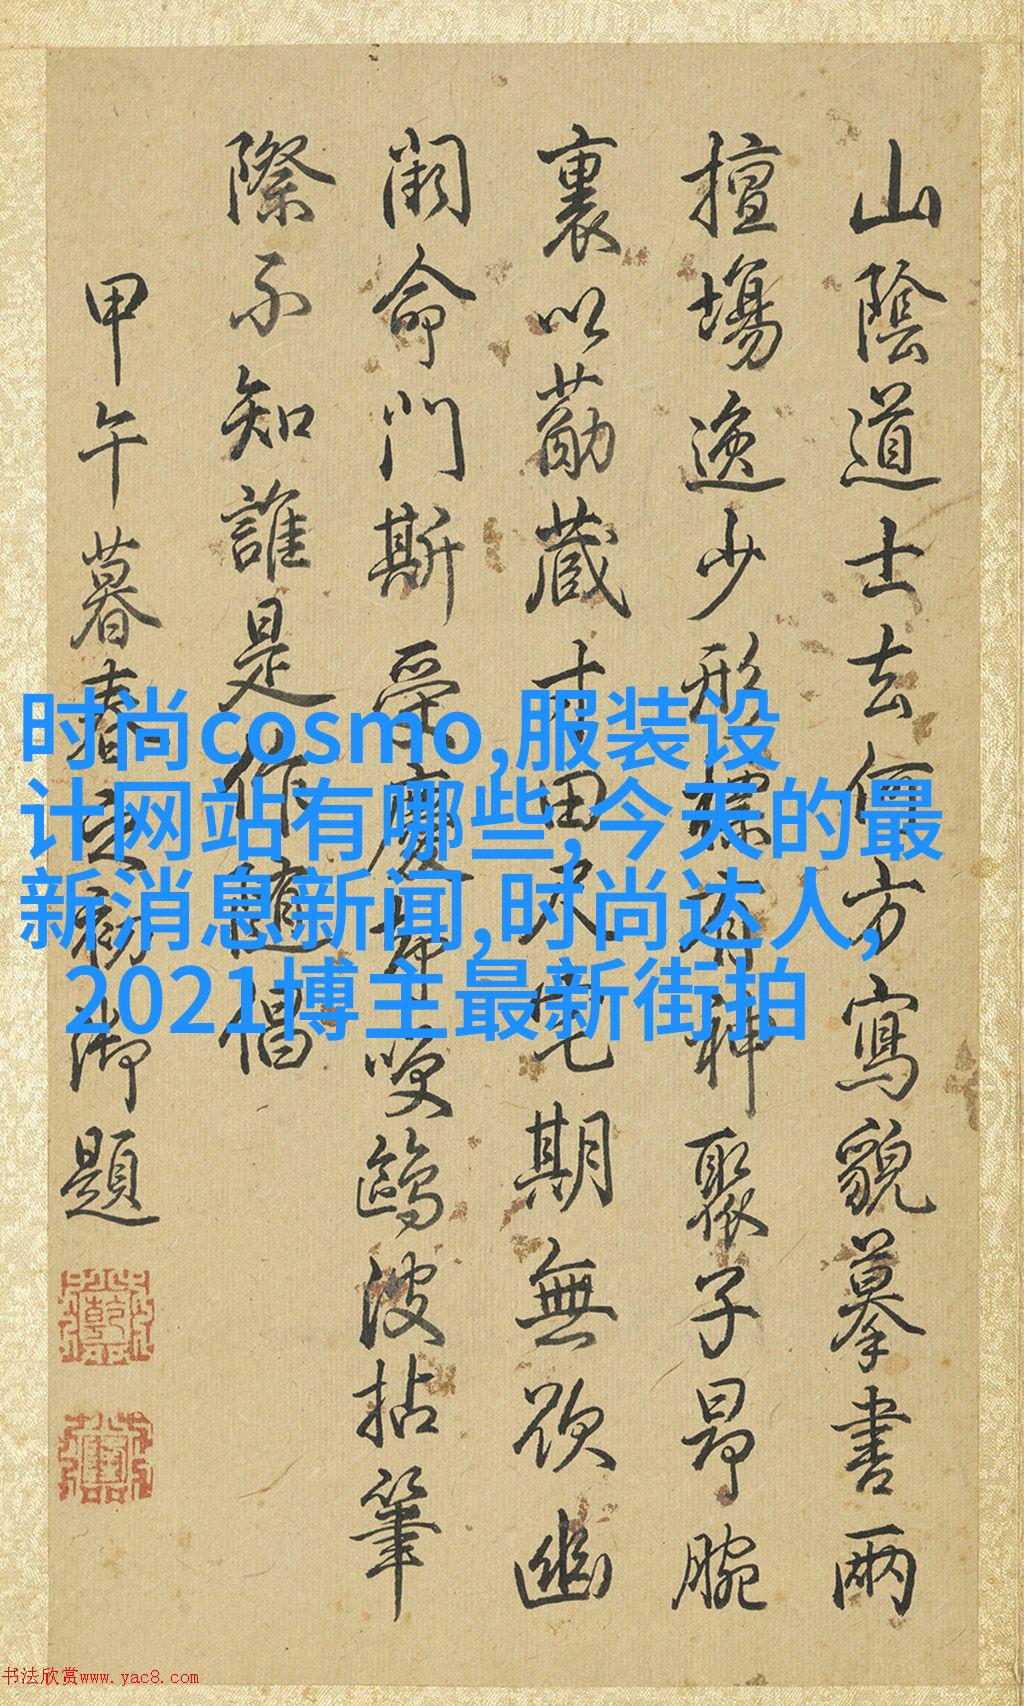 山陰道士去何方寫貌摹書兩
擅場逸少形標有神聚子昂腕
裏以勛藏才田史宅期無欲幽
闲命門斯受慶歸哭鷗波拈筆
際不知誰是作隨倡
甲午暮春之初御題
时尚cosmo,服装设
计网站有哪些,今天的最
新消息新闻,时尚达人,
2021博主最新街拍
书法欣赏www.yac8.com